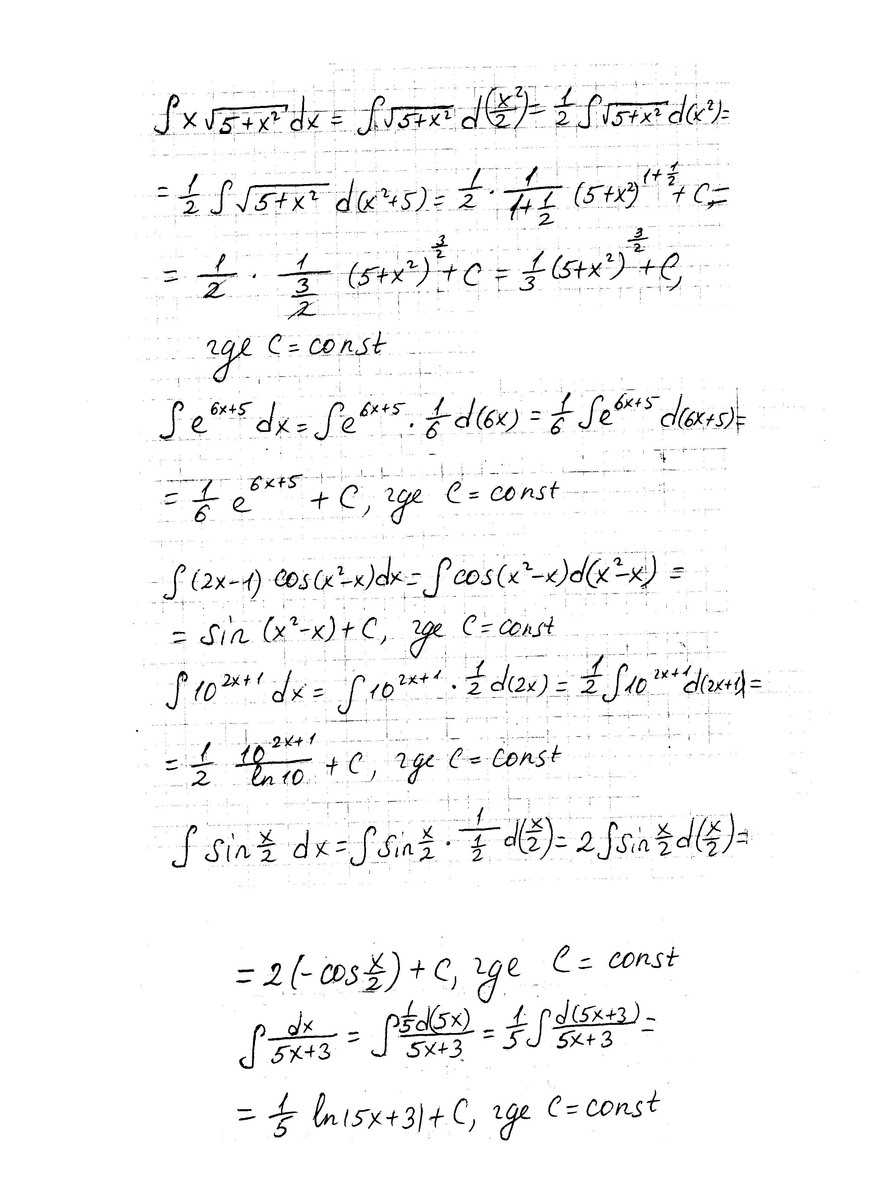 ∫x√(5+x²) dx = ∫√(5+x²) d(x²/2) = 1/2 ∫√(5+x²) d(x²) =
= 1/2 ∫√(5+x²) d(x²+5) = 1/2 · 1/(1+1/2) (5+x²)^(1+1/2) + C =
= 1/2 · 1/(3/2) (5+x²)^(3/2) + C = 1/3 (5+x²)^(3/2) + C,
где C = const
∫e^(6x+5) dx = ∫e^(6x+5) · 1/6 d(6x) = 1/6 ∫e^(6x+5) d(6x+5) =
= 1/6 e^(6x+5) + C, где C = const
∫(2x-1) cos(x²-x)dx = ∫cos(x²-x)d(x²-x) =
= sin (x²-x) + C, где C = const
∫10^(2x+1) dx = ∫10^(2x+1) · 1/2 d(2x) = 1/2 ∫10^(2x+1) d(2x+1) =
= 1/2 10^(2x+1)/ln 10 + C, где C = const
∫sin x/2 dx = ∫sin x/2 · 1/(1/2) d(x/2) = 2∫sin x/2 d(x/2) =
= 2(-cos x/2) + C, где C = const
∫dx/(5x+3) = ∫(1/5 d(5x))/(5x+3) = 1/5 ∫d(5x+3)/(5x+3) =
= 1/5 ln|5x+3| + C, где C = const